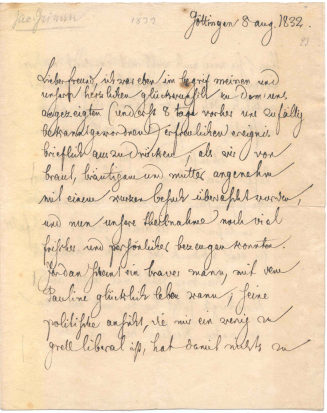 Jac Grimm 1832
Göttingen 8 aug. 1832.
Lieber freund, ich war eben im begrif meinen und
unsern herzlichen glückwunsch zu dem uns
angezeigten (und erst 8 tage vorher uns zufällig
bekannt gewordnen) erfreulichen ereignis
brieflich auszudrücken, als wir von
braut, bräutigam und mutter angenehm
mit einem kurzen besuch überrascht wurden,
und nun unsere theilnahme noch viel
frischer und persönlicher bezeugen konnten.
Jordan scheint ein braver mann, mit dem
Pauline glücklich leben kann, seine
politische ansicht, die mir ein wenig zu
grell liberal ist, hat damit nichts zu